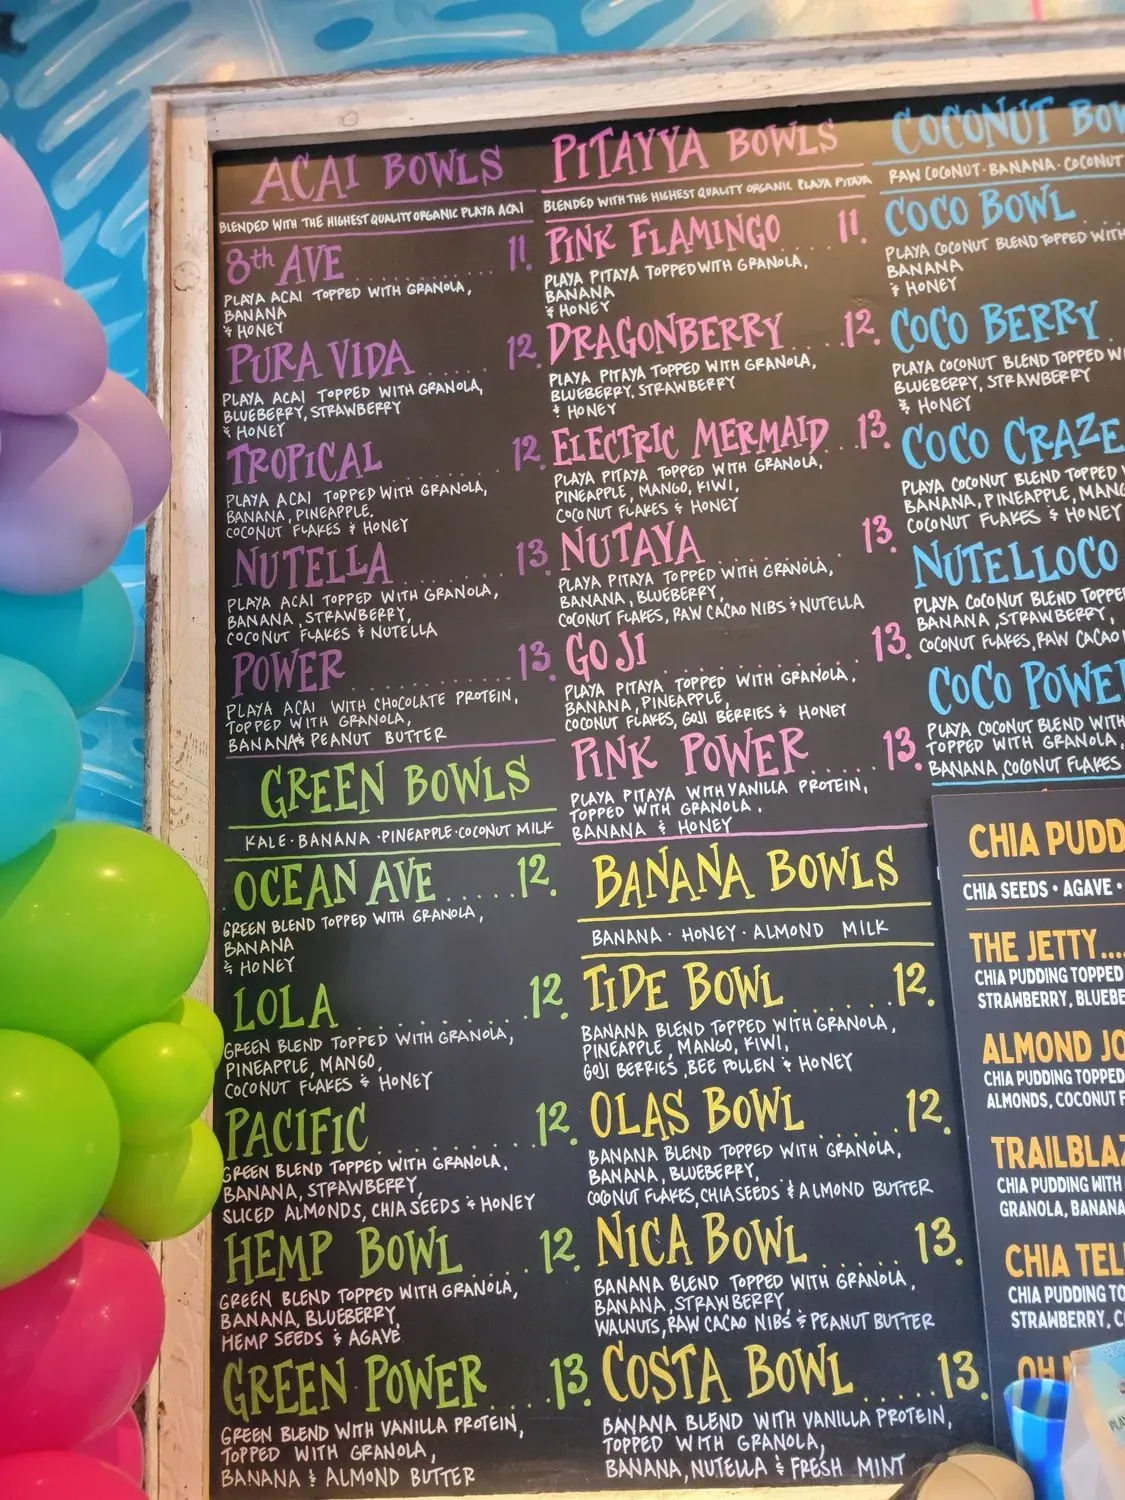 ACAI BOWLS
BLENDED WITH THE HIGHEST QUALITY ORGANIC PLAYA ACAI
8th AVE 11.
PLAYA ACAI TOPPED WITH GRANOLA,
BANANA
& HONEY
PURA VIDA 12.
PLAYA ACAI TOPPED WITH GRANOLA,
BLUEBERRY, STRAWBERRY
& HONEY
TROPICAL 12.
PLAYA ACAI TOPPED WITH GRANOLA,
BANANA, PINEAPPLE.
COCONUT FLAKES & HONEY
NUTELLA 13.
PLAYA ACAI TOPPED WITH GRANOLA,
BANANA, STRAWBERRY,
COCONUT FLAKES & NUTELLA
POWER 13.
PLAYA ACAI WITH CHOCOLATE PROTEIN,
TOPPED WITH GRANOLA,
BANANA & PEANUT BUTTER
GREEN BOWLS
KALE · BANANA · PINEAPPLE · COCONUT MILK
OCEAN AVE 12.
GREEN BLEND TOPPED WITH GRANOLA,
BANANA
& HONEY
LOLA 12.
GREEN BLEND TOPPED WITH GRANOLA,
PINEAPPLE, MANGO,
COCONUT FLAKES & HONEY
PACIFIC 12.
GREEN BLEND TOPPED WITH GRANOLA,
BANANA, STRAWBERRY,
SLICED ALMONDS, CHIA SEEDS & HONEY
HEMP BOWL 12.
GREEN BLEND TOPPED WITH GRANOLA,
BANANA, BLUEBERRY,
HEMP SEEDS & AGAVE
GREEN POWER 13.
GREEN BLEND WITH VANILLA PROTEIN,
TOPPED WITH GRANOLA,
BANANA & ALMOND BUTTER
PITAYYA BOWLS
BLENDED WITH THE HIGHEST QUALITY ORGANIC PLAYA PITAYA
PINK FLAMINGO 11.
PLAYA PITAYA TOPPED WITH GRANOLA,
BANANA
& HONEY
DRAGONBERRY 12.
PLAYA PITAYA TOPPED WITH GRANOLA,
BLUEBERRY, STRAWBERRY
& HONEY
ELECTRIC MERMAID 13.
PLAYA PITAYA TOPPED WITH GRANOLA,
PINEAPPLE, MANGO, KIWI,
COCONUT FLAKES & HONEY
NUTAYA 13.
PLAYA PITAYA TOPPED WITH GRANOLA,
BANANA, BLUEBERRY,
COCONUT FLAKES, RAW CACAO NIBS & NUTELLA
GOJI 13.
PLAYA PITAYA TOPPED WITH GRANOLA,
BANANA, PINEAPPLE,
COCONUT FLAKES, GOJI BERRIES & HONEY
PINK POWER 13.
PLAYA PITAYA WITH VANILLA PROTEIN,
TOPPED WITH GRANOLA,
BANANA & HONEY
BANANA BOWLS
BANANA · HONEY · ALMOND MILK
TIDE BOWL 12.
BANANA BLEND TOPPED WITH GRANOLA,
PINEAPPLE, MANGO, KIWI,
GOJI BERRIES, BEE POLLEN & HONEY
OLAS BOWL 12.
BANANA BLEND TOPPED WITH GRANOLA,
BANANA, BLUEBERRY,
COCONUT FLAKES, CHIA SEEDS & ALMOND BUTTER
NICA BOWL 13.
BANANA BLEND TOPPED WITH GRANOLA,
BANANA, STRAWBERRY,
WALNUTS, RAW CACAO NIBS & PEANUT BUTTER
COSTA BOWL 13.
BANANA BLEND WITH VANILLA PROTEIN,
TOPPED WITH GRANOLA,
BANANA, NUTELLA & FRESH MINT
COCONUT BOW
RAW COCONUT · BANANA · COCONUT
COCO BOWL
PLAYA COCONUT BLEND TOPPED WITH
BANANA
& HONEY
COCO BERRY
PLAYA COCONUT BLEND TOPPED WI
BLUEBERRY, STRAWBERRY
& HONEY
COCO CRAZE
PLAYA COCONUT BLEND TOPPED
BANANA, PINEAPPLE, MANG
COCONUT FLAKES & HONEY
NUTELLOCO
PLAYA COCONUT BLEND TOPPE
BANANA, STRAWBERRY,
COCONUT FLAKES, RAW CACAO
COCO POWE
PLAYA COCONUT BLEND WITH
TOPPED WITH GRANOLA,
BANANA, COCONUT FLAKES
CHIA PUDD
CHIA SEEDS • AGAVE •
THE JETTY....
CHIA PUDDING TOPPED
STRAWBERRY, BLUEBE
ALMOND JO
CHIA PUDDING TOPPED
ALMONDS, COCONUT F
TRAILBLAZ
CHIA PUDDING WITH
GRANOLA, BANANA
CHIA TEL
CHIA PUDDING TO
STRAWBERRY, C
OH